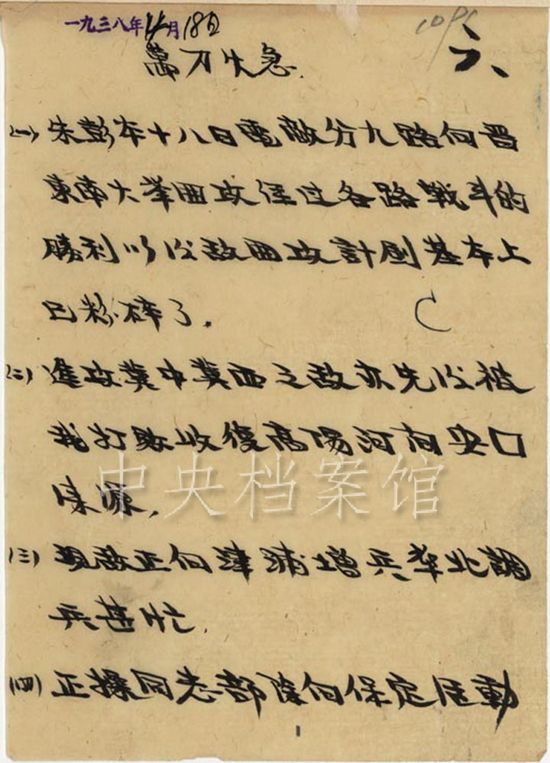 一九三八年4月18日
萬万火急.
(一)朱彭本十八日電敵分九路向晋
東南大举囬攻经过各路戰斗的
勝利以后敌囬攻計划基本上
已粉碎了.
C
(二)進攻冀中冀西之敌亦先后被
我打败收復高陽河间口
涞源,
中央档案馆
(三)現敌正向津浦增兵华北調
兵甚忙.
(四)正操同志部隊向保定活動
1